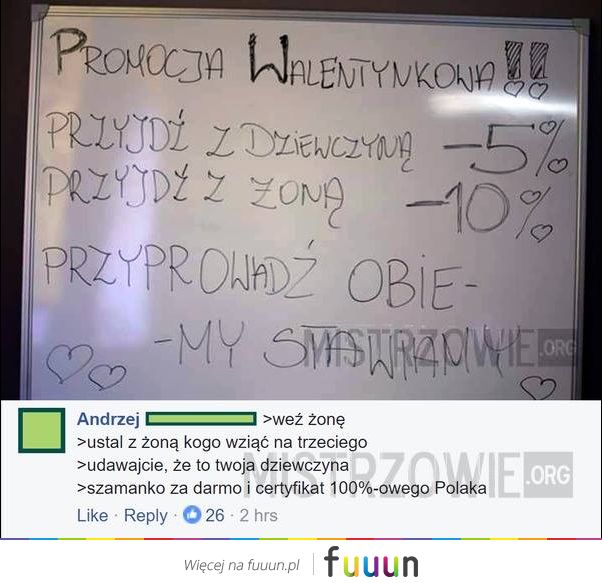 PROMOCJA WALENTYNKOWA!!
PRZYJDŹ Z DZIEWCZYNĄ -5%
PRZYJDŹ Z ŻONĄ -10%
PRZYPROWADŹ OBIE-
-MY STAWIAMY
MISTRZOWIE.ORG
Andrzej >weź żonę
>ustal z żoną kogo wziąć na trzeciego
>udawajcie, że to twoja dziewczyna
>szamanko za darmo i certyfikat 100%-owego Polaka
MISTRZOWIE.ORG
Like · Reply · 26 · 2 hrs
Więcej na fuuun.pl | fuuun